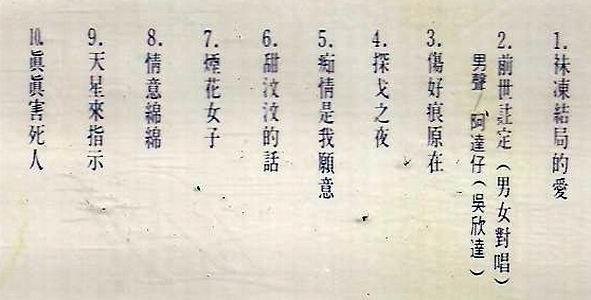 1.袜凍結局的愛
2.前世註定(男女對唱)
男聲/阿達仔(吳欣達)
3.傷好痕原在
4.探戈之夜
5.痴情是我願意
6.甜汶汶的話
7.煙花女子
8.情意綿綿
9.天星來指示
10.真真害死人